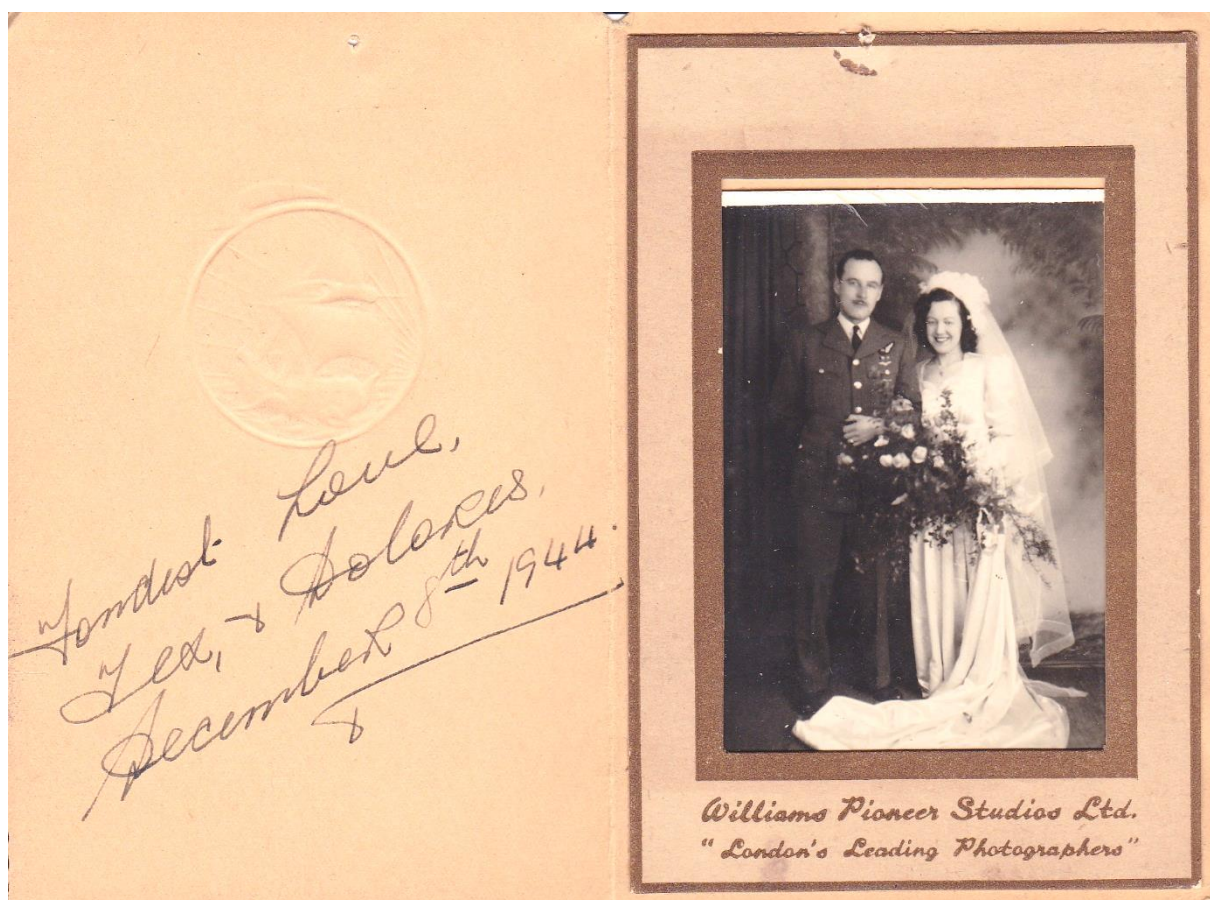 Fondest Love,
Ted, & Dolores,
December 8th 1944.
Williams Pioneer Studios Ltd.
"London's Leading Photographers"